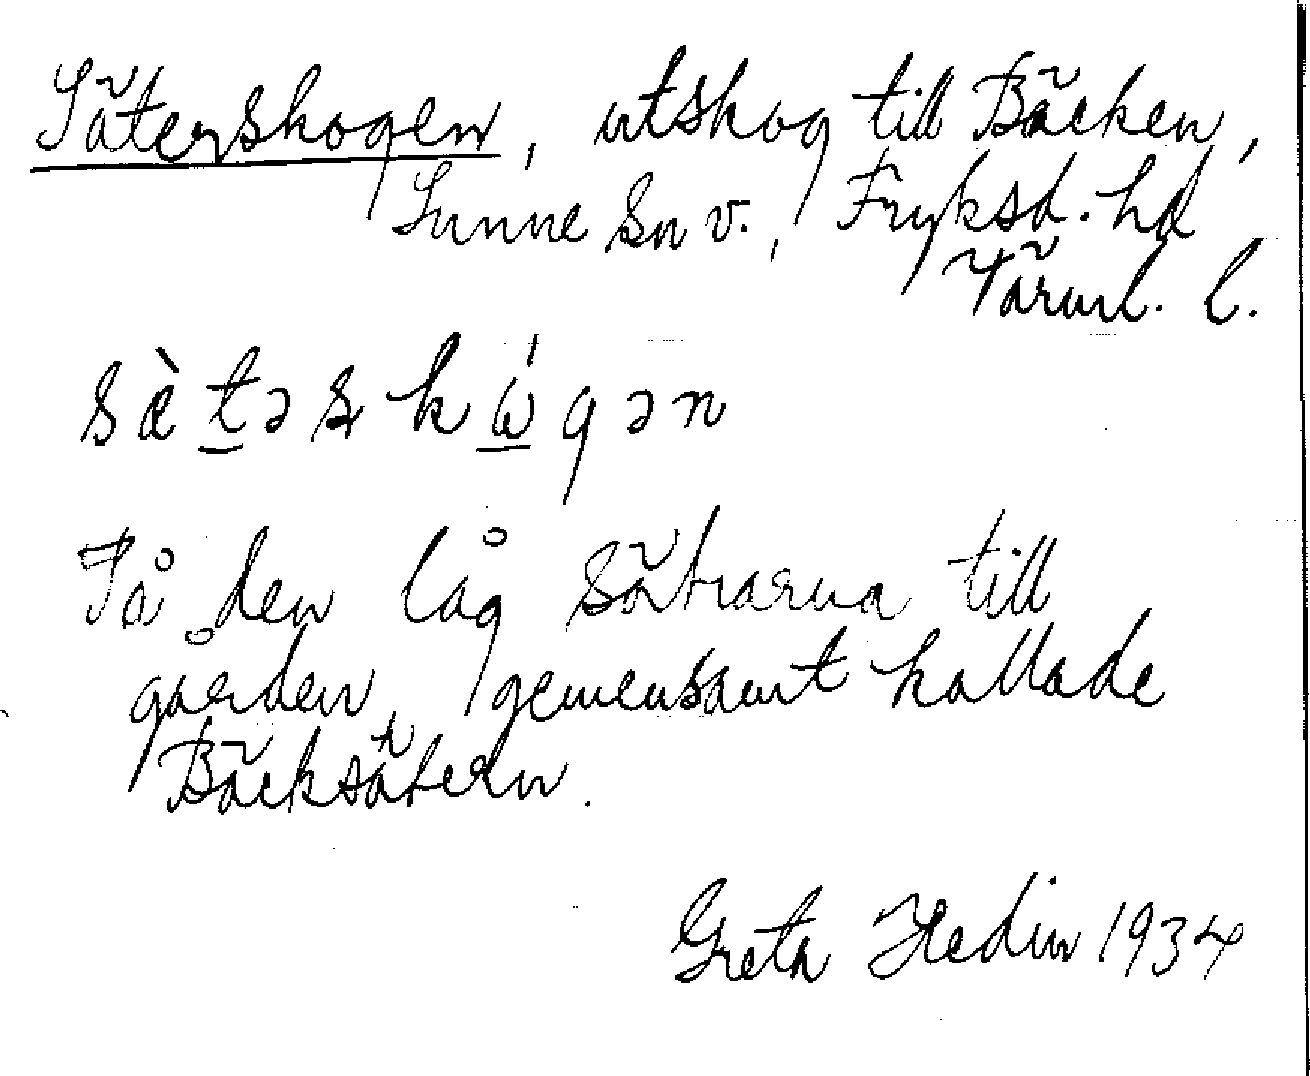 Säterskogen, utskog till Bäcken,
Sunne sn v., Fryksd. hd
Värml. l.
sæ̀t̲əskώ̲gən
På den låg sätrarna till
gården, gemensamt kallade
Bäcksätern.
Greta Hedin 1934